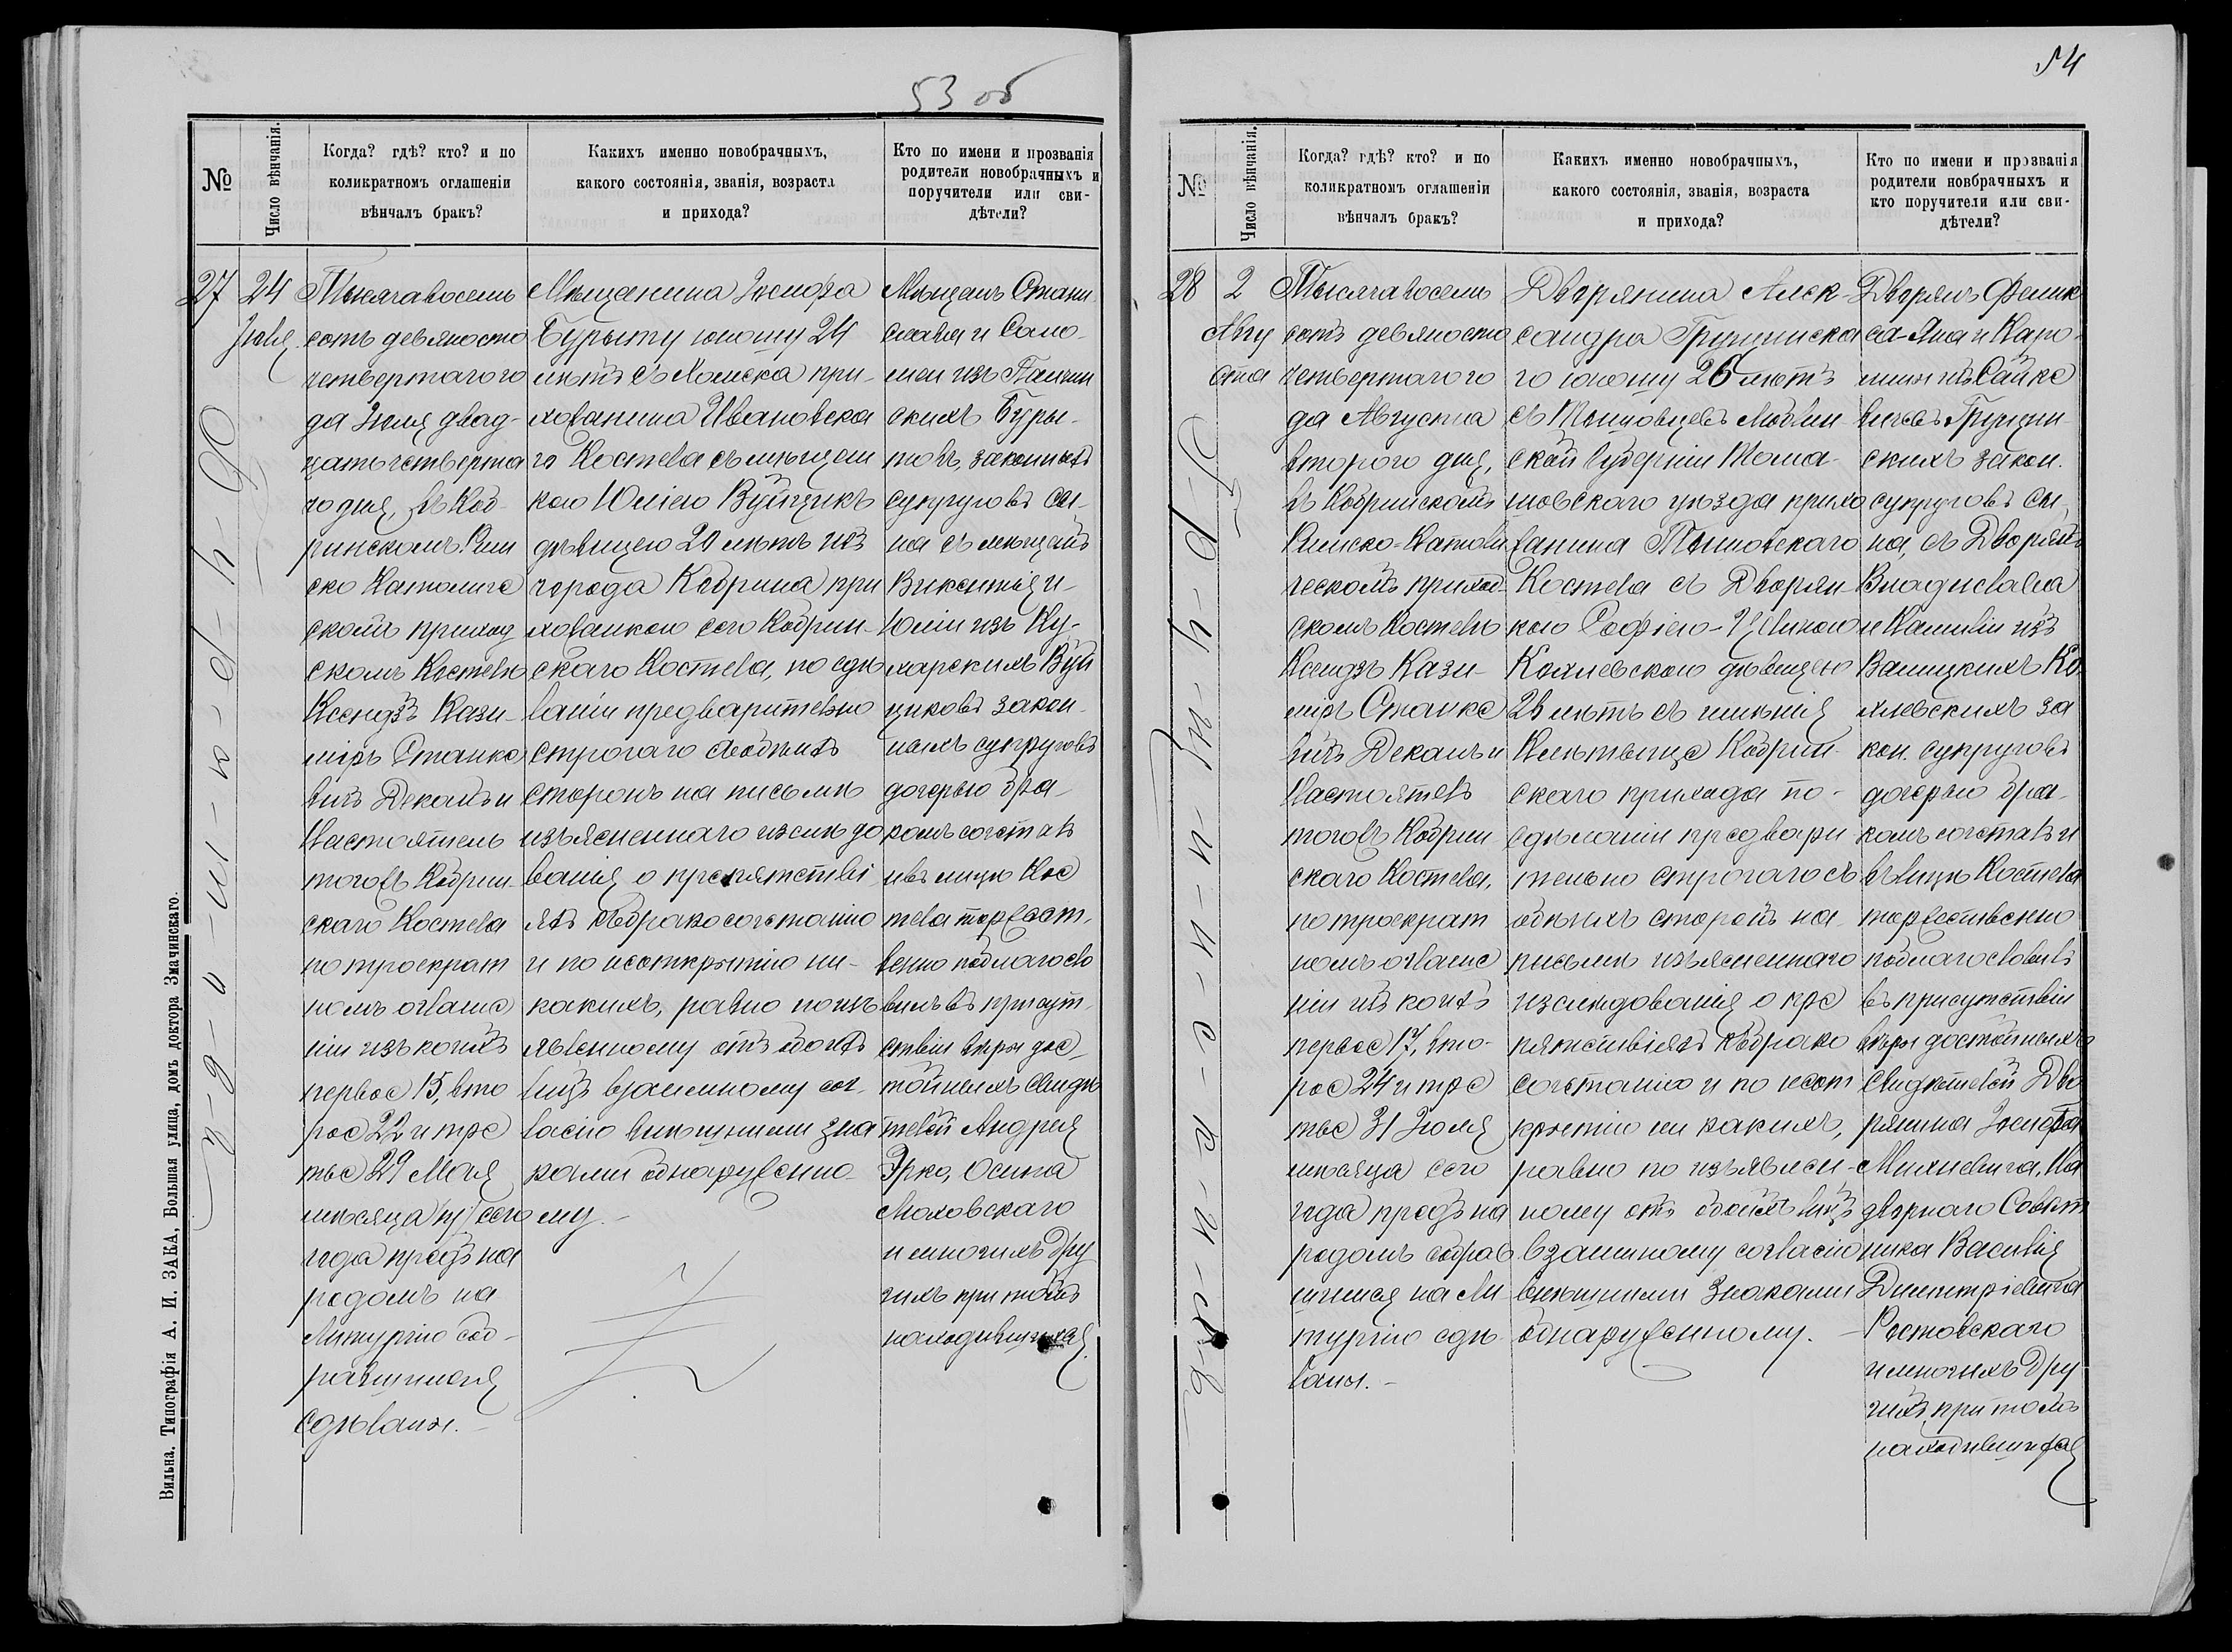 53 об
№
Число вѣнчанія.
Когда? гдѣ? кто? и по
коликратномъ оглашеніи
вѣнчалъ бракъ?
Какихъ именно новобрачныхъ,
какого состоянія, званія, возраста
и прихода?
Кто по имени и прозванія
родители новобрачныхъ и
поручители или сви-
дѣтели?
27
24
Іюля
Тысяча восемь
сотъ девяносто
четвертаго го
да Іюля двад-
цать четверта
го дня, въ Коб-
ринскомъ Рим
ско Католиче
скомъ приход
скомъ Костелѣ
Ксендзъ Кази-
міръ Станке
вичъ Деканъ и
Настоятель
тогожъ Кобрин-
скаго Костела
по троекрат
номъ оглаше
ніи изъ коихъ
первое 15, вто
рое 22 и тре
тье 29 Мая
мѣсяца сего
года предъ на
родомъ на
Литургію соб-
равшимся
сдѣланы.
Мѣщанина Іосифа
Бурыту юношу 24
лѣтъ съ Хомска при-
хожанина Ивановска
го Костела съ мѣщан
кою Юліею Вуйцикъ
дѣвицею 20 лѣтъ изъ
города Кобрина при
хожанкою сего Кобрин-
скаго Костела, по сдѣ
ланіи предварительно
строгаго съ обоихъ
сторонъ на письмѣ
изъясненнаго изслѣдо
ванія о препятстві
яхъ къ бракосочетанію
и по неоткрытію ни-
какихъ, равно по изъ
явленному отъ обоихъ
лицъ взаимному сог-
ласію внѣшними зна
ками обнаруженно-
му.
Мѣщанъ Стани
слава и Сало-
меи изъ
скихъ Буры-
товъ, законныхъ
супруговъ сы-
на съ мѣщанъ
Викентія и
Юліи изъ Ку-
харскихъ Вуй
циковъ закон-
ныхъ супруговъ
дочерью бра-
комъ сочеталъ
и въ лицѣ Кос
тела торжест-
венно поблагосло
вилъ въ присут-
ствіи вѣры дос-
тойныхъ свидѣ
телей Андрея
Эрко, Осипа
Маховскаго
и многихъ дру
гихъ при томъ
находившихся.
Вильна. Типографія А. И. ЗАКА, Большая улица, домъ доктора Змачинскаго.
54
№
Число вѣнчанія.
Когда? гдѣ? кто? и по
коликратномъ оглашеніи
вѣнчалъ бракъ?
Какихъ именно новобрачныхъ,
какого состоянія, званія, возраста
и прихода?
Кто по имени и прозванія
родители новбрачныхъ и
кто поручители или сви-
дѣтели?
28
2
Авгу
ста
Тысяча восемь
сотъ девяносто
четвертаго го
да Августа
второго дня,
въ Кобринскомъ
Римско-Католи
ческомъ приход-
скомъ Костелѣ
Ксендзъ Кази-
міръ Станке
вичъ Деканъ и
Настоятель
тогожъ Кобрин-
скаго Костела,
по троекрат
номъ оглаше
ніи изъ коихъ
первое 17, вто-
рое 24 и тре
тье 31 Іюля
мѣсяца сего
года предъ на
родомъ собрав
шимся на Ли
тургію сдѣ-
ланы.
Дворянина Алек-
сандра Грущинска
го юношу 26 лѣтъ
съ Тышовцевъ Люблин
ской губерніи Тома-
шовскаго уѣзда прихо
жанина Тышовскаго
Костела съ Дворян-
кою Софіею-
Кохлевскою дѣвицею
26 лѣтъ съ имѣнія
Кобрин-
скаго прихода по-
сдѣланіи предвари
тельно строгаго съ
обѣихъ сторонъ на
письмѣ изъясненнаго
изслѣдованія о пре
пятствіяхъ къ брако
сочетанію и по неот
крытію ни какихъ,
равно по изъявлен-
ному отъ обоихъ лицъ
взаимному согласію
внѣшними знаками
обнаруженному.
Дворянъ Фелик
са-Яна и Каро-
лины изъ Сайке
вичевъ Грущин-
скихъ закон.
супруговъ сы-
на, съ Дворянъ
Владислава
и Камиліи изъ
Валицкихъ Ко
хлевскихъ за
кон. супруговъ
дочерью бра-
комъ сочеталъ и
въ лицѣ Костела
торжественно
поблагословилъ
въ присутствіи
вѣры достойныхъ
свидѣтелей Дво
рянина Іосифа
Михневича, На
дворнаго Совѣт
ника Василія
Дмитріевича
Ростовскаго
и многихъ дру
гихъ при томъ
находившихся